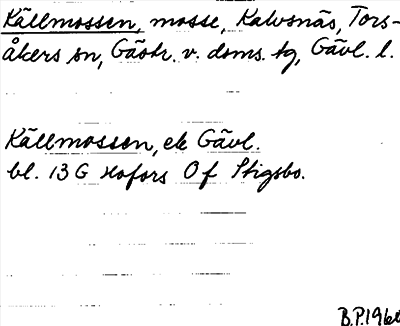 Källmossen, mosse, Kalvsnäs, Tors-
åkers sn, Gästr. v. doms. tg, Gävl. l.
Källmossen, ek Gävl.
bl. 13 G Hofors 0 f Stigsbo.
B.P. 1960